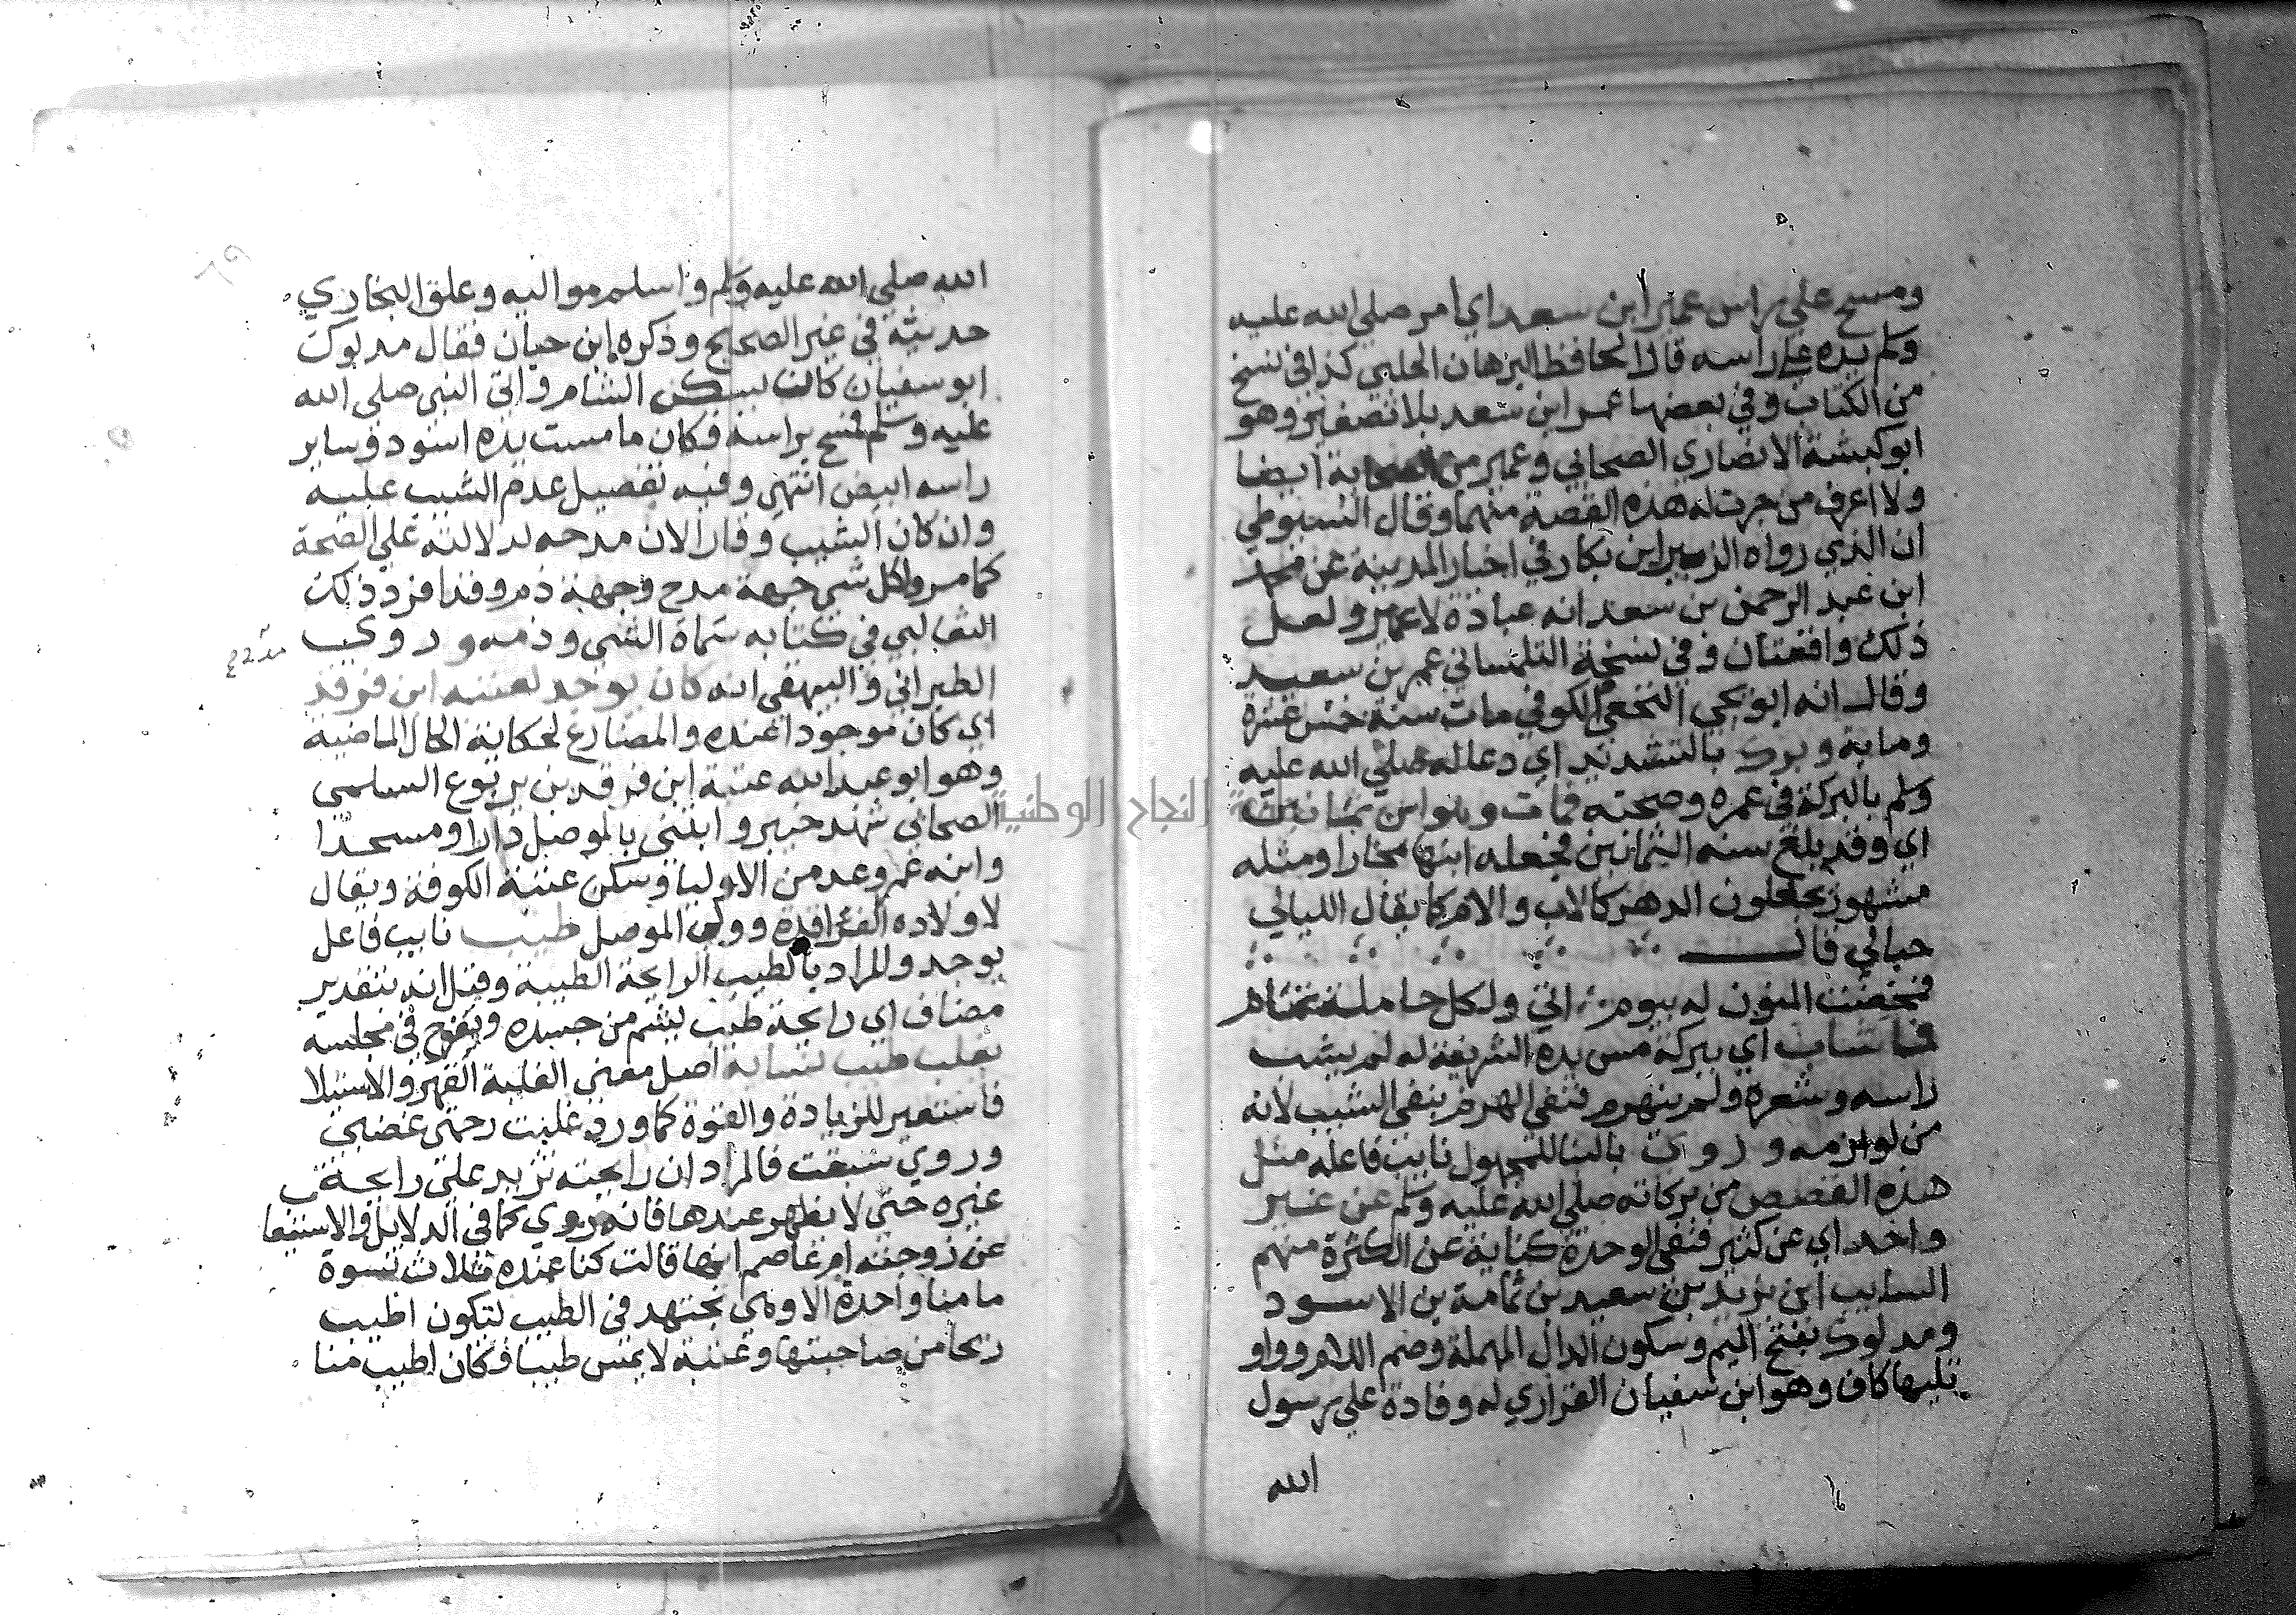 ومسح على راس عمير ابن سعد اي امر صلى الله عليه
وسلم يده على راسه قال الحافظ البرهان الحلبي كذا في نسخ
من الكتاب وفي بعضها عمر ابن سعد بلا تصغير وهو
ابو كبشة الانصاري الصحابي وعمير من الصحابة ايضا
ولا اعرف من جرت له هذه القصة منهما وقال السيوطي
ان الذي رواه الزبير ابن بكار في اخبار المدينة عن محمد
ابن عبد الرحمن بن سعد انه عبادة لا عمير ولعل
ذلك واقعتان وفي نسخة التلمساني عمر بن سعيد
وقال انه ابو يحيى النخعي الكوفي مات سنة خمس عشرة
وماية وبرك بالتشديد اي دعا له صلى الله عليه
وسلم بالبركة في عمره وصحته فمات وهو ابن ثمانين
اي وقد بلغ سنه الثمانين فجعله ابنها مجازا ومثله
مشهور يجعلون الدهر كالاب والام كما يقال الليالي
حبالي قال
فمخضت المنون له بيوم اتى ولكل حاملة تمام
فما شاب اي ببركة مس يده الشريفة له لم يشب
راسه وشعره ولم يهرم فنفي الهرم بنفي الشيب لانه
من لوازمه وروي بالبنا للمجهول نايب فاعله مثل
هذه القصص من بركاته صلى الله عليه وسلم عن غير
واحد اي عن كثير فنفي الوحدة كناية عن الكثرة منهم
السايب ابن يزيد بن سعيد بن ثمامة بن الاسود
ومدلوك بفتح الميم وسكون الدال المهملة وضم اللام وواو
تليها كاف وهو ابن سفيان الفزاري له وفادة على رسول
الله
الله صلى الله عليه وسلم واسلم مواليه وعلق البخاري
حديثه في غير الصحيح وذكره ابن حيان فقال مدلوك
ابو سفيان كان يسكن الشام واتى النبي صلى الله
عليه وسلم فمسح براسه فكان ما مست يده اسود وساير
راسه ابيض انتهى وفيه تفصيل عدم الشيب عليه
وان كان الشيب وقارا لان مدحه لدلالته على الصحة
كما مر ولكل شي جهة مدح وجهة ذم وقد افرد ذلك
الثعالبي في كتابه سماه الشي وذمه وروي
الطبراني والبيهقي انه كان يوجد لعتبة ابن فرقد
اي كان موجودا عنده والمضارع لحكاية الحال الماضية
وهو ابو عبد الله عتبة ابن فرقد بن يربوع السلمي
الصحابي شهد خيبر وابتنى بالموصل دارا ومسجدا
وابنه عمرو عد من الاوليا وسكن عتبة الكوفة ويقال
لاولاده الفراقدة وولي الموصل طيب نايب فاعل
يوجد والمراد بالطيب الرايحة الطيبة وقيل انه بتقدير
مضاف اي رايحة طيب يشم من جسده ويفوح في مجلسه
يغلب طيب نسايه اصل معنى الغلبة القهر والاستيلا
فاستعير للزيادة والقوة كما ورد غلبت رحمتي غضبي
وروي سبقت فالمراد ان رايحته تزيد على رايحة
غيره حتى لا يظهر عندها فانه روي كما في الدلايل والاستيعا
عن زوجته ام عاصم انها قالت كنا عنده ثلاث نسوة
ما منا واحدة الا وهي تجتهد في الطيب لتكون اطيب
ريحا من صاحبتها وعتبة لا يمس طيبا وكان اطيب منا
جامعة النجاح الوطنية